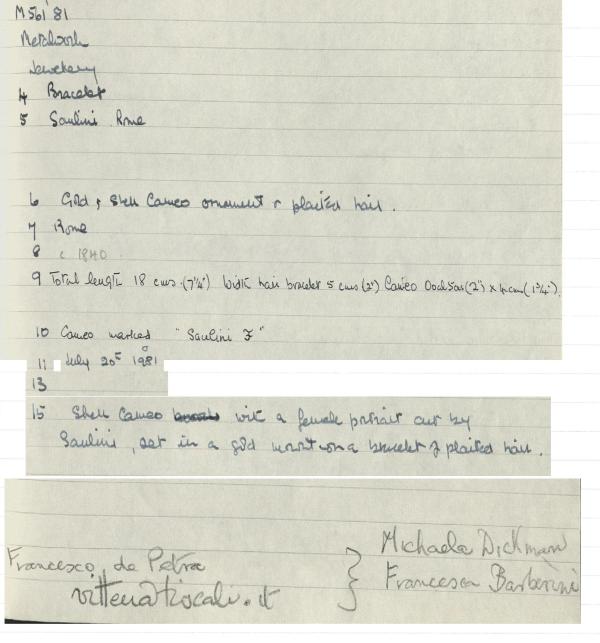 M561'81
Metalwork
Jewellery
4 Bracelet
5 Saulini Rome
6 Gold & Shell Cameo ornament & plaited hair.
7 Rome
8 c 1840
9 Total length 18 cms. (7¼") Width hair bracelet 5 cms (2") Cameo 5cms (2") x 4cm (1¾").
10 Cameo marked "Saulini F"
11 July 20th 1981
13
15 Shell Cameo with a female portrait cut by
Saulini, set in a gold mount on a bracelet of plaited hair.
Michaela Dickmann
Francesco da Petra } Francesca Barberini